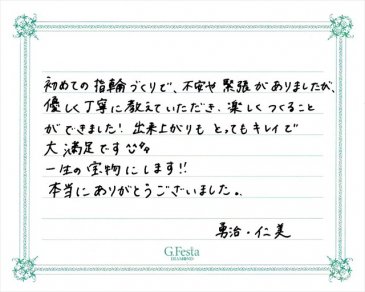 初めての指輪づくりで、不安や緊張がありましたが、
優しく丁寧に教えていただき、楽しくつくること
ができました！出来上がりもとってもキレイで
大満足です
一生の宝物にします!!
本当にありがとうございました。
勇治・仁美
G.Festa
DIAMOND